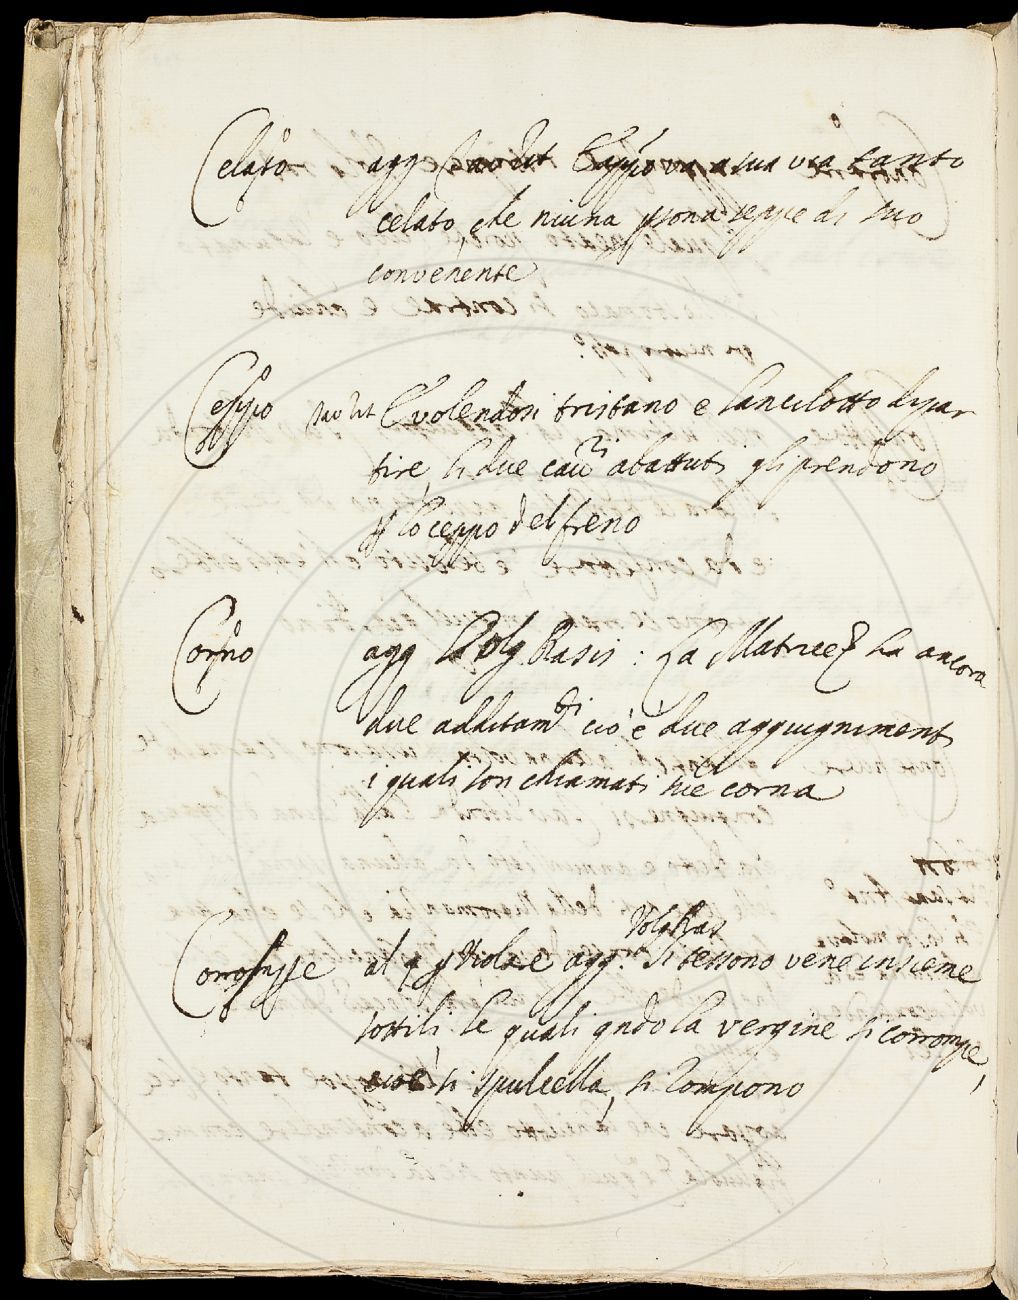 Celato agg Tav Rit E appo va a sua via tanto
celato, che niuna psona seppe di suo
convenente
Ceppo Tav Rit E volendosi tristano e Lancilotto dipar
tire, li due cavri abattuti gli prendono
p lo ceppo del freno
Corno agg Volg Rasis: La Matrice ha ancora
due additamti cio è due aggiugnimenti
i quali son chiamati sue corna
Volg Ras
Corrompe al § p Violare agg. si tessono vene insieme
sottili le quali qndo la vergine si corrompe,
cioè si spulcella, si rompono